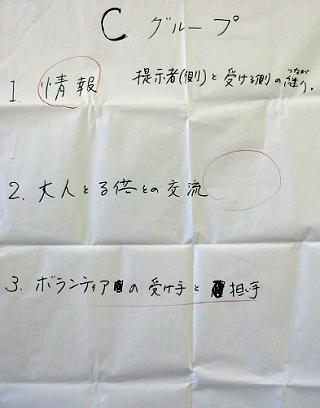 C グループ
1. 情報 提示者(側)と受ける側の継り。
つなが
2. 大人と子供との交流
3. ボランティアの受け手と担手